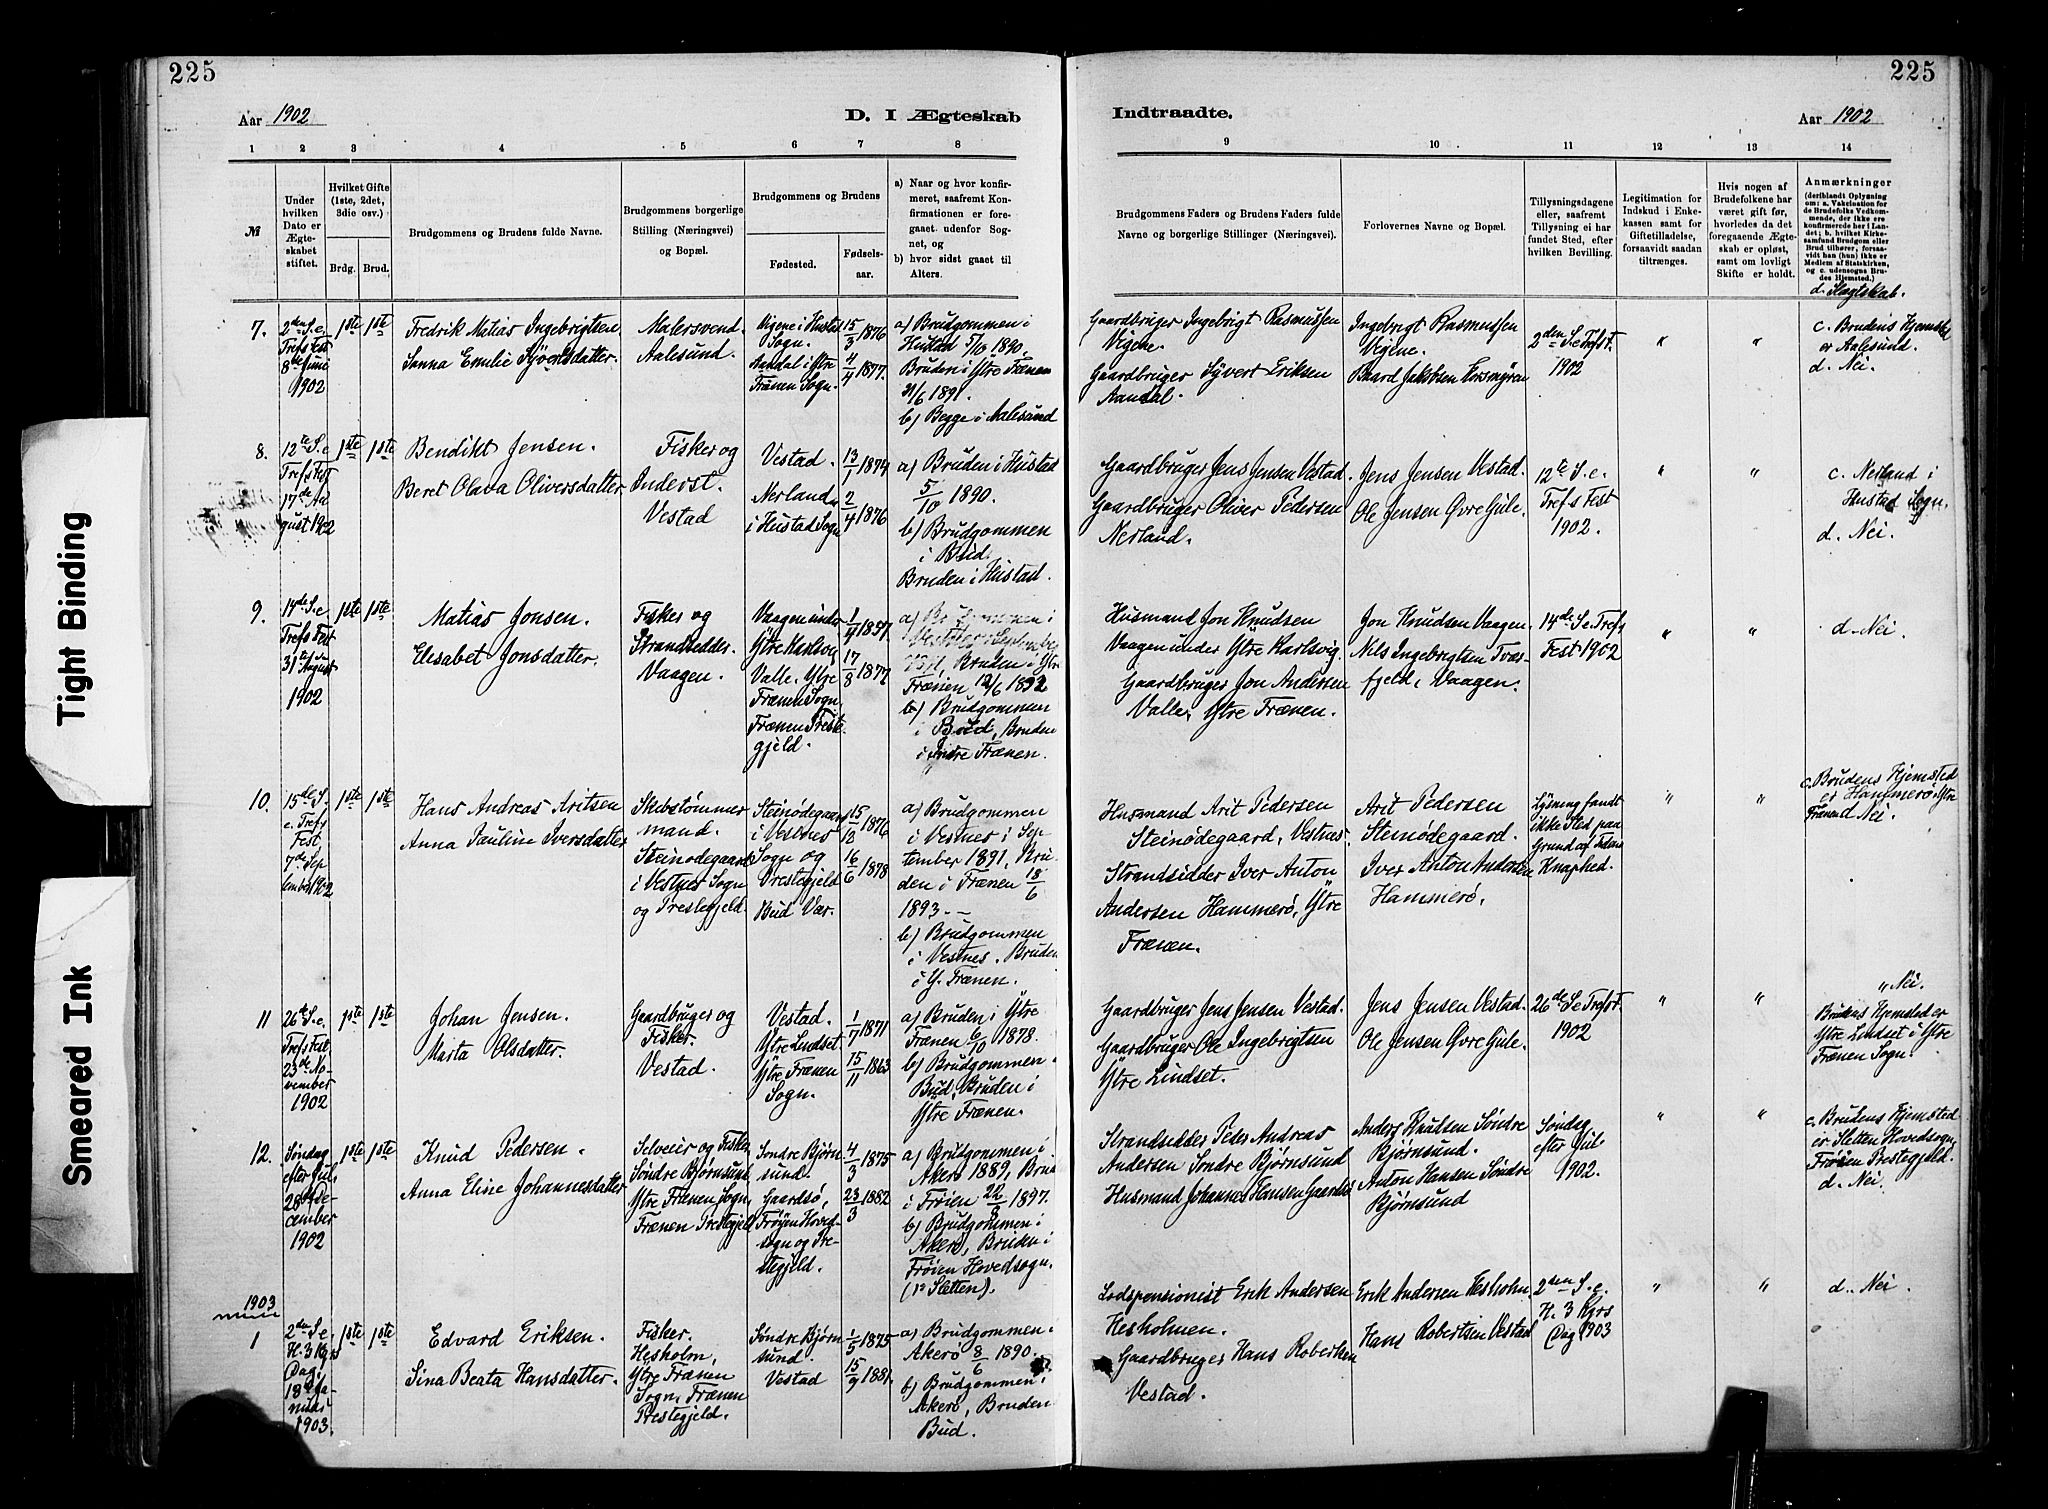 225
225
Aar 1902
D. I Ægteskab
Indtraadte.
Aar 1902
1 2 3 4 5 6 7 8 9 10 11 12 13 14
№
Under hvilken Dato er Ægteskabet stiftet.
Hvilket Gifte (1ste, 2det, 3die osv.)
Brdg. Brud.
Brudgommens og Brudens fulde Navne.
Brudgommens borgerlige Stilling (Næringsvei) og Bopæl.
Brudgommens og Brudens
Fødested. Fødselsaar.
a) Naar og hvor konfirmeret, saafremt Konfirmationen er foregaaet udenfor Sognet, og
b) hvor sidst gaaet til Alters.
Brudgommens Faders og Brudens Faders fulde Navne og borgerlige Stillinger (Næringsvei).
Forlovernes Navne og Bopæl.
Tillysningsdagene eller, saafremt Tillysning ei har fundet Sted, efter hvilken Bevilling.
Legitimation for Indskud i Enkekassen samt for Giftetilladelse, forsaavidt saadan tiltrænges.
Hvis nogen af Brudefolkene har været gift før, hvorledes da det foregaaende Ægteskab er opløst, samt om lovligt Skifte er holdt.
Anmærkninger
(deriblandt Oplysning om: a. Vakcination for de Brudefolks Vedkommende, der ikke ere konfirmerede her i Landet; b. hvilket Kirkesamfund Brudgom eller Brud tilhører, forsaavidt han (hun) ikke er Medlem af Statskirken, og c. udensogns Brudes Hjemsted.)
d. Slægtskab.
7.
2den S. e. Trefs Fest 8de Juni 1902
1ste 1ste
Fredrik Matias Ingebrigtsen.
Sanna Emilie Syvertsdatter.
Malersvend. Aalesund.
Vigene i Hustad Sogn.
Aandal i Ytre Frænen Sogn.
15/3 1876
4/4 1877.
a) Brudgommen i Hustad 5/10 1890. Bruden i Ytre Frænen 21/6 1891.
b) Begge i Aalesund
Gaardbruger Ingebrigt Rasmussen Vigene.
Gaardbruger Syvert Eriksen Aandal.
Ingebrigt Rasmussen Vigene.
Baard Jakobsen Korsmyren
2den S. e Trefst. 1902
" "
c. Brudens Hjemsted er Aalesund.
d. Nei.
8.
12te S. e Trefs Fest 17de August 1902
1ste 1ste
Bendikt Jensen.
Beret Olava Oliversdatter
Fisker og Inderst. Vestad
Vestad.
Nerland i Hustad Sogn
13/1 1874
2/4 1876
a) Bruden i Hustad 5/10 1890.
b) Brudgommen i Bud. Bruden i Hustad.
Gaardbruger Jens Jensen Vestad.
Gaardbruger Oliver Pedersen Nerland.
Jens Jensen Vestad.
Ole Jensen Øvre Gule.
12te S. e. Trefs Fest 1902.
" "
c. Nerland i Hustad Sogn.
d. Nei.
9.
14de S. e Trefs Fest 31te August 1902
1ste 1ste
Matias Jonsen.
Elesabet Jonsdatter.
Fisker og Strandsidder. Vaagen.
Vaagen under Ytre Karlsvig
Valle, Ytre Frænen Sogn, Frænen Prestegjeld.
1/4 1857.
17/8 1877
Bruden i Ytre Frænen 12/6 1892
b) Brudgommen i Bud, Bruden i Indre Frænen.
Husmand Jon Knudsen Vaagen under Ytre Karlsvig.
Gaardbruger Jon Andersen Valle, Ytre Frænen.
Jon Knudsen Vaagen.
Nels Ingebrigtsen Tværfjeld, Vaagen.
14de S. e Trefs Fest 1902
" "
d. Nei.
10.
15de S. e. Trefs Fest, 7de September 1902
1ste 1ste
Hans Andreas Aritsen
Anna Pauline Iversdatter
Skibstømmermand. Steinødegaard i Vestnes Sogn og Prestegjeld.
Steinødegaard i Vestnes Sogn og Prestegjeld
Bud Vær.
15/12 1876
16/6 1878
a) Brudgommen i Vestnes i September 1891, Bruden i Frænen 18/6 1893.
b) Brudgommen i Vestnes. Bruden i Y. Frænen.
Husmand Arit Pedersen Steinødegaard, Vestnes.
Strandsidder Iver Anton Andersen Hammerø, Ytre Frænen.
Arit Pedersen Steinødegaard.
Iver Anton Andersen Hammerø,
Lysning fandt ikke Sted paa Grund af Tidens Knaphed.
" "
c. Brudens Hjemsted er Hammerø, Ytre Frænen
d Nei.
11
26de S. e. Trefs Fest 23de November 1902
1ste 1ste
Johan Jensen.
Marta Olsdatter.
Gaardbruger og Fisker. Vestad.
Vestad.
Ytre Lindset Ytre Frænen Sogn.
1/7 1871
15/11 1863
a) Bruden i Ytre Frænen 6/10 1878.
b) Brudgommen i Bud, Bruden i Ytre Frænen.
Gaardbruger Jens Jensen Vestad.
Gaardbruger Ole Ingebrigtsen Ytre Lindset.
Jens Jensen Vestad.
Ole Jensen Øvre Gule.
26de S. e Trefst. 1902
" "
" Nei.
Brudens Hjemsted er Ytre Lindset i Ytre Frænen Sogn.
12.
Søndag efter Jul, 28de December 1902
1ste 1ste
Knud Pedersen.
Anna Eline Johannesdatter
Selveier og Fisker Søndre Bjørnsund, Ytre Frænen Sogn, Frænen Prestegjeld
Søndre Bjørnsund.
Gaardsø, Frøyen Hovedsogn og Prestegjeld.
4/3 1875
23/3 1882
a) Brudgommen i Akerø 1889, Brud i Frøien 22/8 1897.
b) Brudgommen i Akerø, Bruden i Frøien Hovedsogn. (Sletten).
Strandsidder Peder Andreas Andersen Søndre Bjørnsund
Husmand Johannes Hansen Gaardsø
Anders Knudsen Søndre Bjørnsund.
Anton Hansen Søndre Bjørnsund
Søndag efter Jul 1902.
" "
c. Brudens Hjemsted er Sletten Hovedsogn, Frøien Prestegjeld.
d. Nei.
1903
1
2den S. e. H. 3 Kgrs Dag, 18de Januar 1903.
1ste 1ste
Edvard Eriksen.
Sina Beata Hansdatter.
Fisker. Hesholm, Ytre Frænen Sogn, Frænen Prestegjeld.
Søndre Bjørnsund.
Vestad
1/5 1875
15/9 1881.
a) Brudgommen i Akerø 8/6 1890.
b) Brudgommen i Akerø, Bruden Bud.
Lodspensionist Erik Andersen Hesholmen.
Gaardbruger Hans Robertsen Vestad.
Erik Andersen Hesholm.
Hans Robertsen Vestad
2den S. e. H. 3 Kgrs Dag 1903
" "
d. Nei
Tight Binding
Smeared Ink